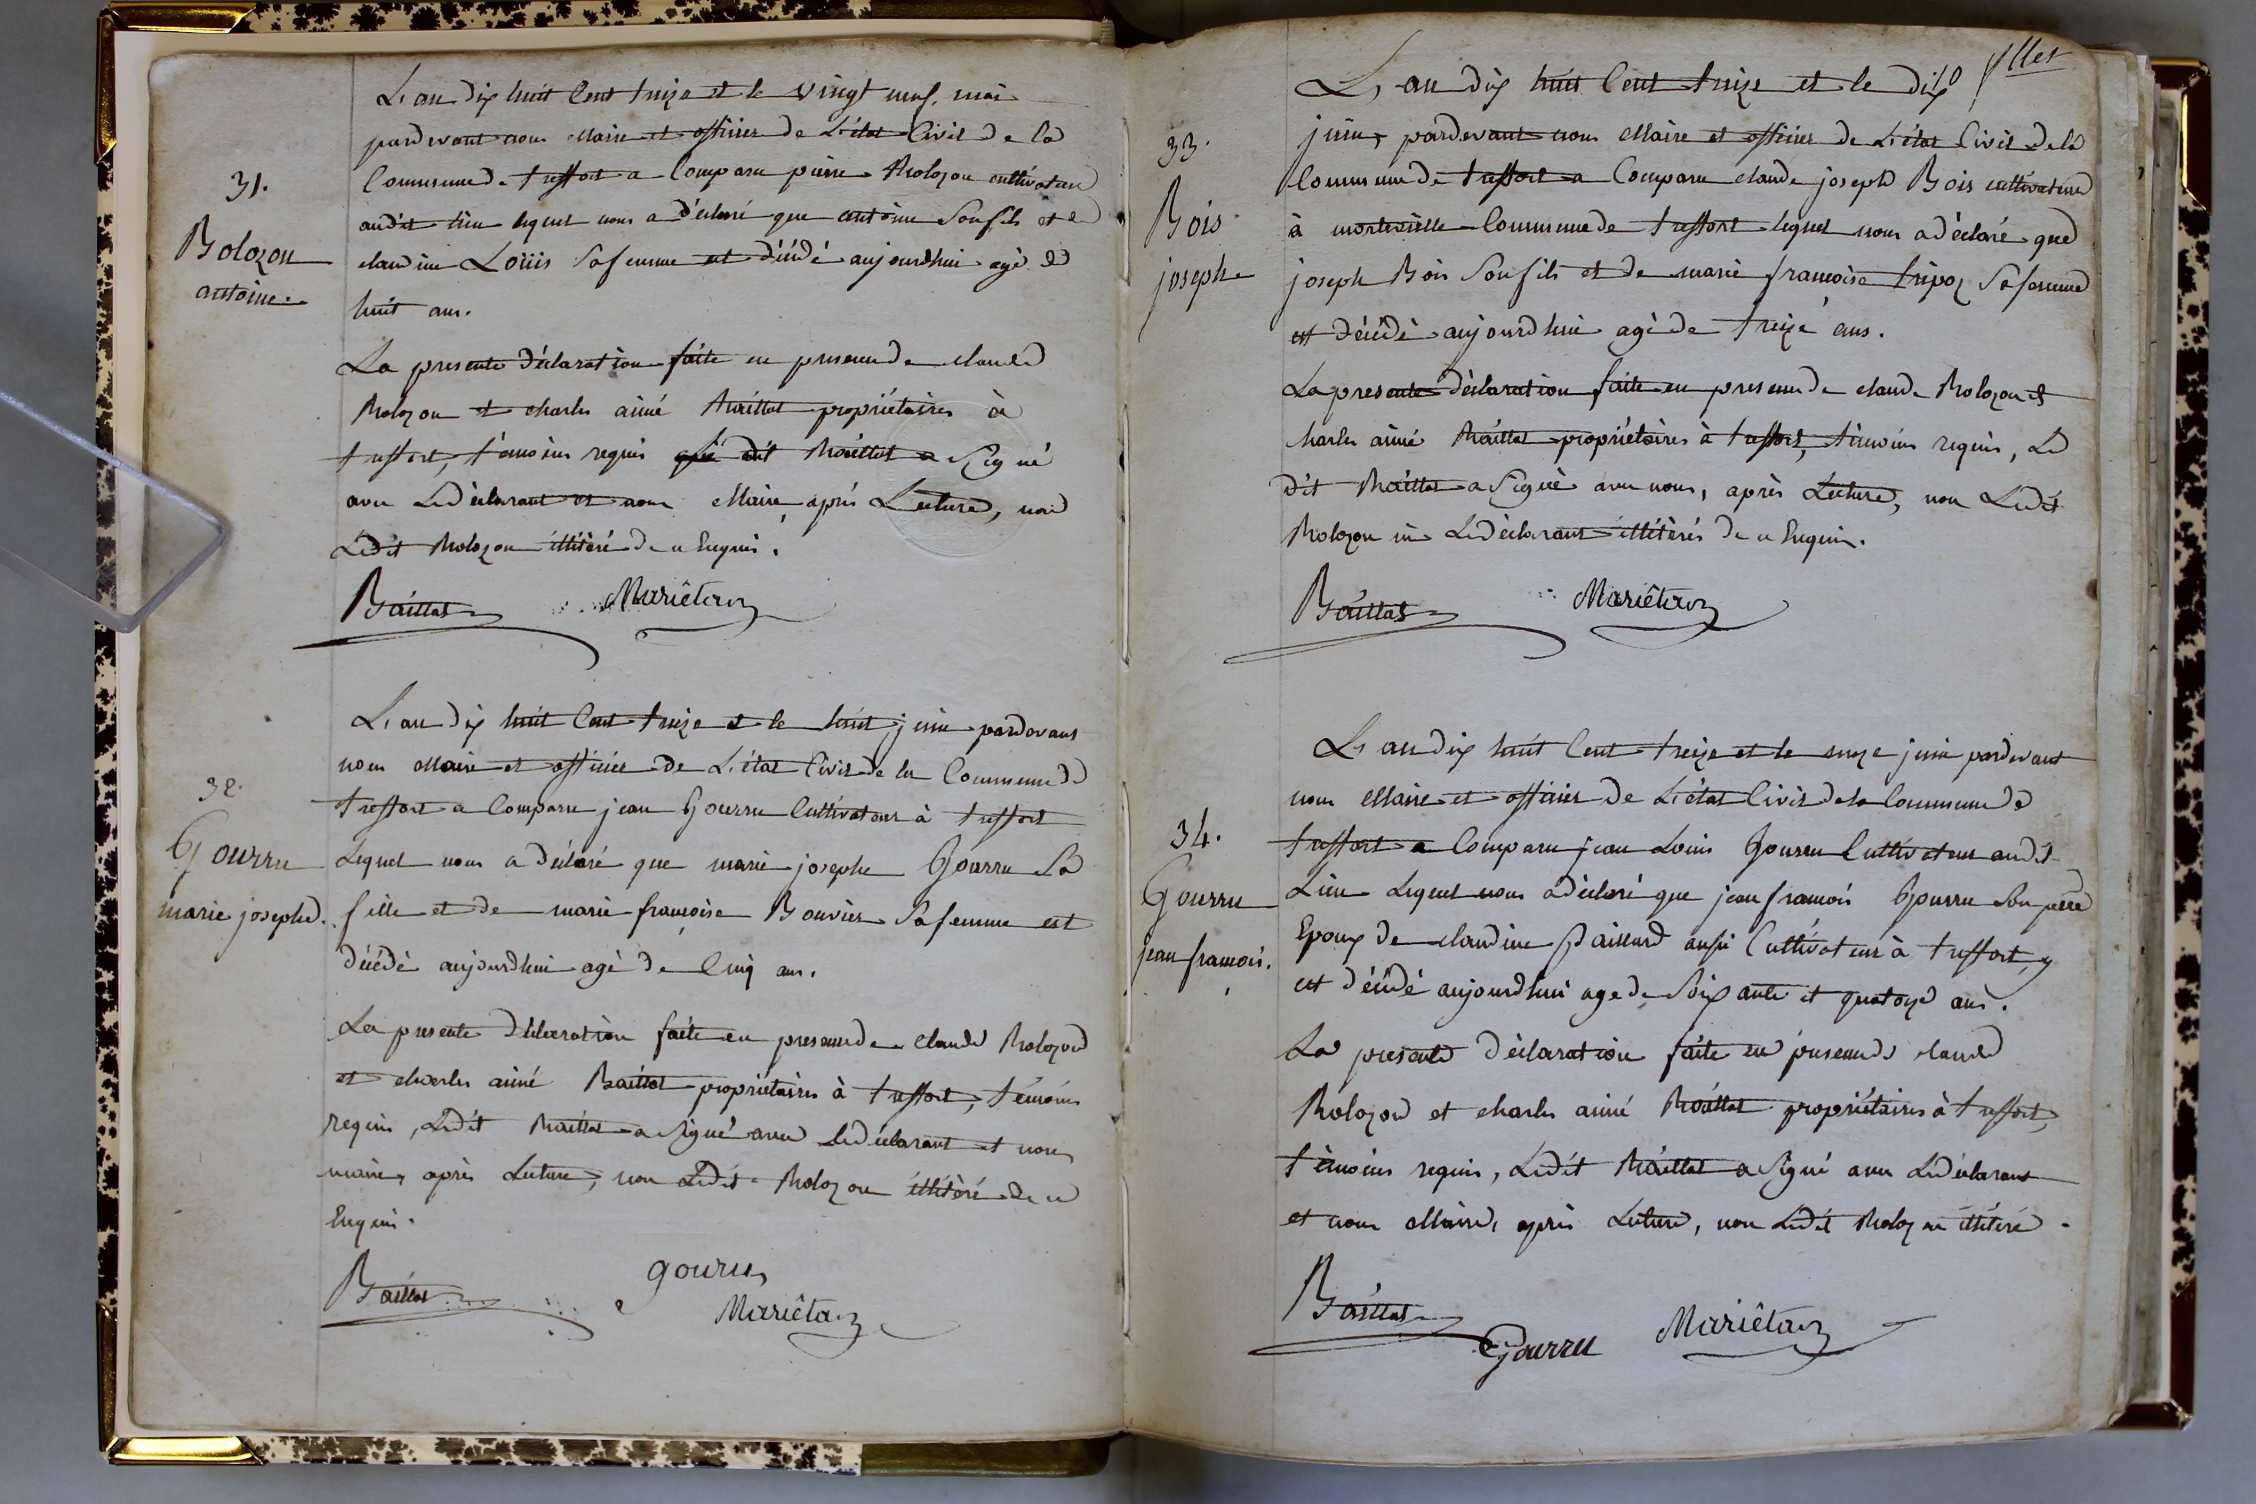 31.
Bolozon
antoine.
L'an dix huit Cent treize et le vingt neuf mai
pardevant nous Maire et officier de L'état Civil de la
Commune de treffort a Comparu pierre Bolozon cultivateur
audit lieu lequel nous a déclaré que antoine Son fils et de
claudine Loüis Sa femme est décédé aujourdhui agé de
huit ans.
La presente déclaration faite en presence de claude
Bolozon et charles aimé Baillat propriétaires à
treffort, témoins requis dit Baillat a Signé
avec Le déclarant et nous Maire, après Lecture, non
Ledit Bolozon illitéré de ce Enquis.
Baillat Mariêtan
32.
Gourru
marie josephe.
L'an dix huit Cent treize et le huit juin pardevant
nous Maire et officier de L'état Civil de la Commune de
treffort a Comparu jean Gourru Cultivateur à treffort
Lequel nous a déclaré que marie josephe Gourru Sa
fille et de marie françoise Bouvier Sa femme est
décédé aujourdhui agé de Cinq ans.
La presente déclaration faite en presence de claude Bolozon
et charles aimé Baillat propriétaires à treffort, témoins
requis, Ledit Baillat a Signé avec Le déclarant et nous
maire, après Lecture, non Ledit Bolozon illitéré de ce
Enquis.
Baillat gouru
Mariêtan
33.
Bois
joseph
L'an dix huit Cent treize et le dix
juin, pardevant nous Maire et officier de L'état Civil de la
Commune de treffort a Comparu claude joseph Bois cultivateur
à Commune de treffort lequel nous a déclaré que
joseph Bois Son fils et de marie françoise tripoz Sa femme
est décédé aujourdhui agé de treize ans.
La presente déclaration faite en presence de claude Bolozon et
charles aimé Baillat propriétaires à treffort, témoins requis, Le
dit Baillat a Signé avec nous, après Lecture, non Ledit
Bolozon ni Le déclarant illitérés de ce Enquis.
Baillat Mariêtan
34.
Gourru
jean françois.
L'an dix huit Cent treize et le onze juin pardevant
nous Maire et officier de L'état Civil de la Commune de
treffort a Comparu jean Louis Gourru Cultivateur audit
Lieu Lequel nous a déclaré que jean françois Gourru Son père
Epoux de claudine paillard aussi Cultivateur à treffort, y
est décédé aujourdhui age de Soixante et quatorze ans.
La presente déclaration faite en presence de claude
Bolozon et charles aimé Baillat propriétaires à treffort,
témoins requis, Ledit Baillat a Signé avec Le déclarant
et nous Maire, après Lecture, non Ledit Bolozon illitéré.
Baillat Gourru Mariêtan